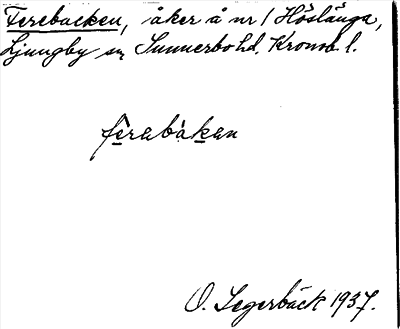 Ferebacken, åker å nr 1 Höslänga,
Ljungby sn Sunnerbo hd. Kronob. l.
fèrabàkan
O. Segerbäck 1937.